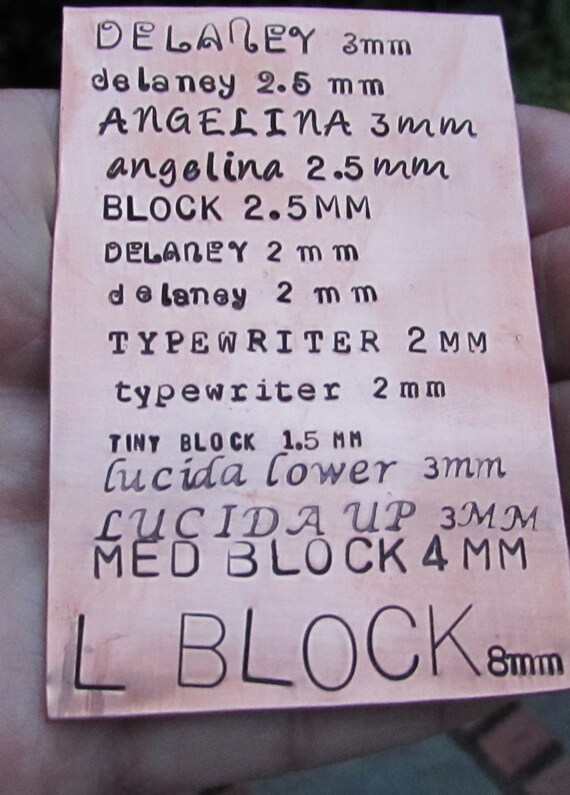 DELANEY 3mm
delaney 2.5 mm
ANGELINA 3mm
angelina 2.5mm
BLOCK 2.5MM
DELANEY 2 mm
delaney 2 mm
TYPEWRITER 2MM
typewriter 2mm
TINY BLOCK 1.5 MM
lucida lower 3mm
LUCIDA UP 3MM
MED BLOCK 4MM
L BLOCK 8mm